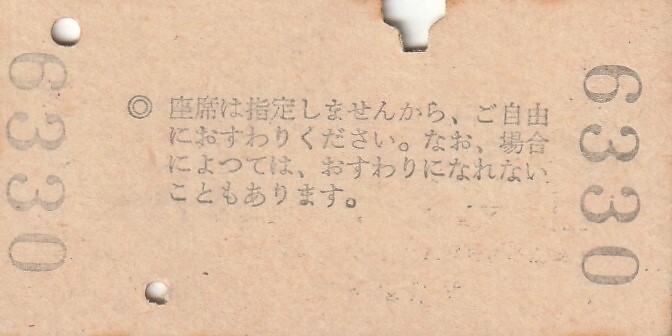 6330
◎ 座席は指定しませんから、ご自由
におすわりください。なお、場合
によつては、おすわりになれない
こともあります。
6330